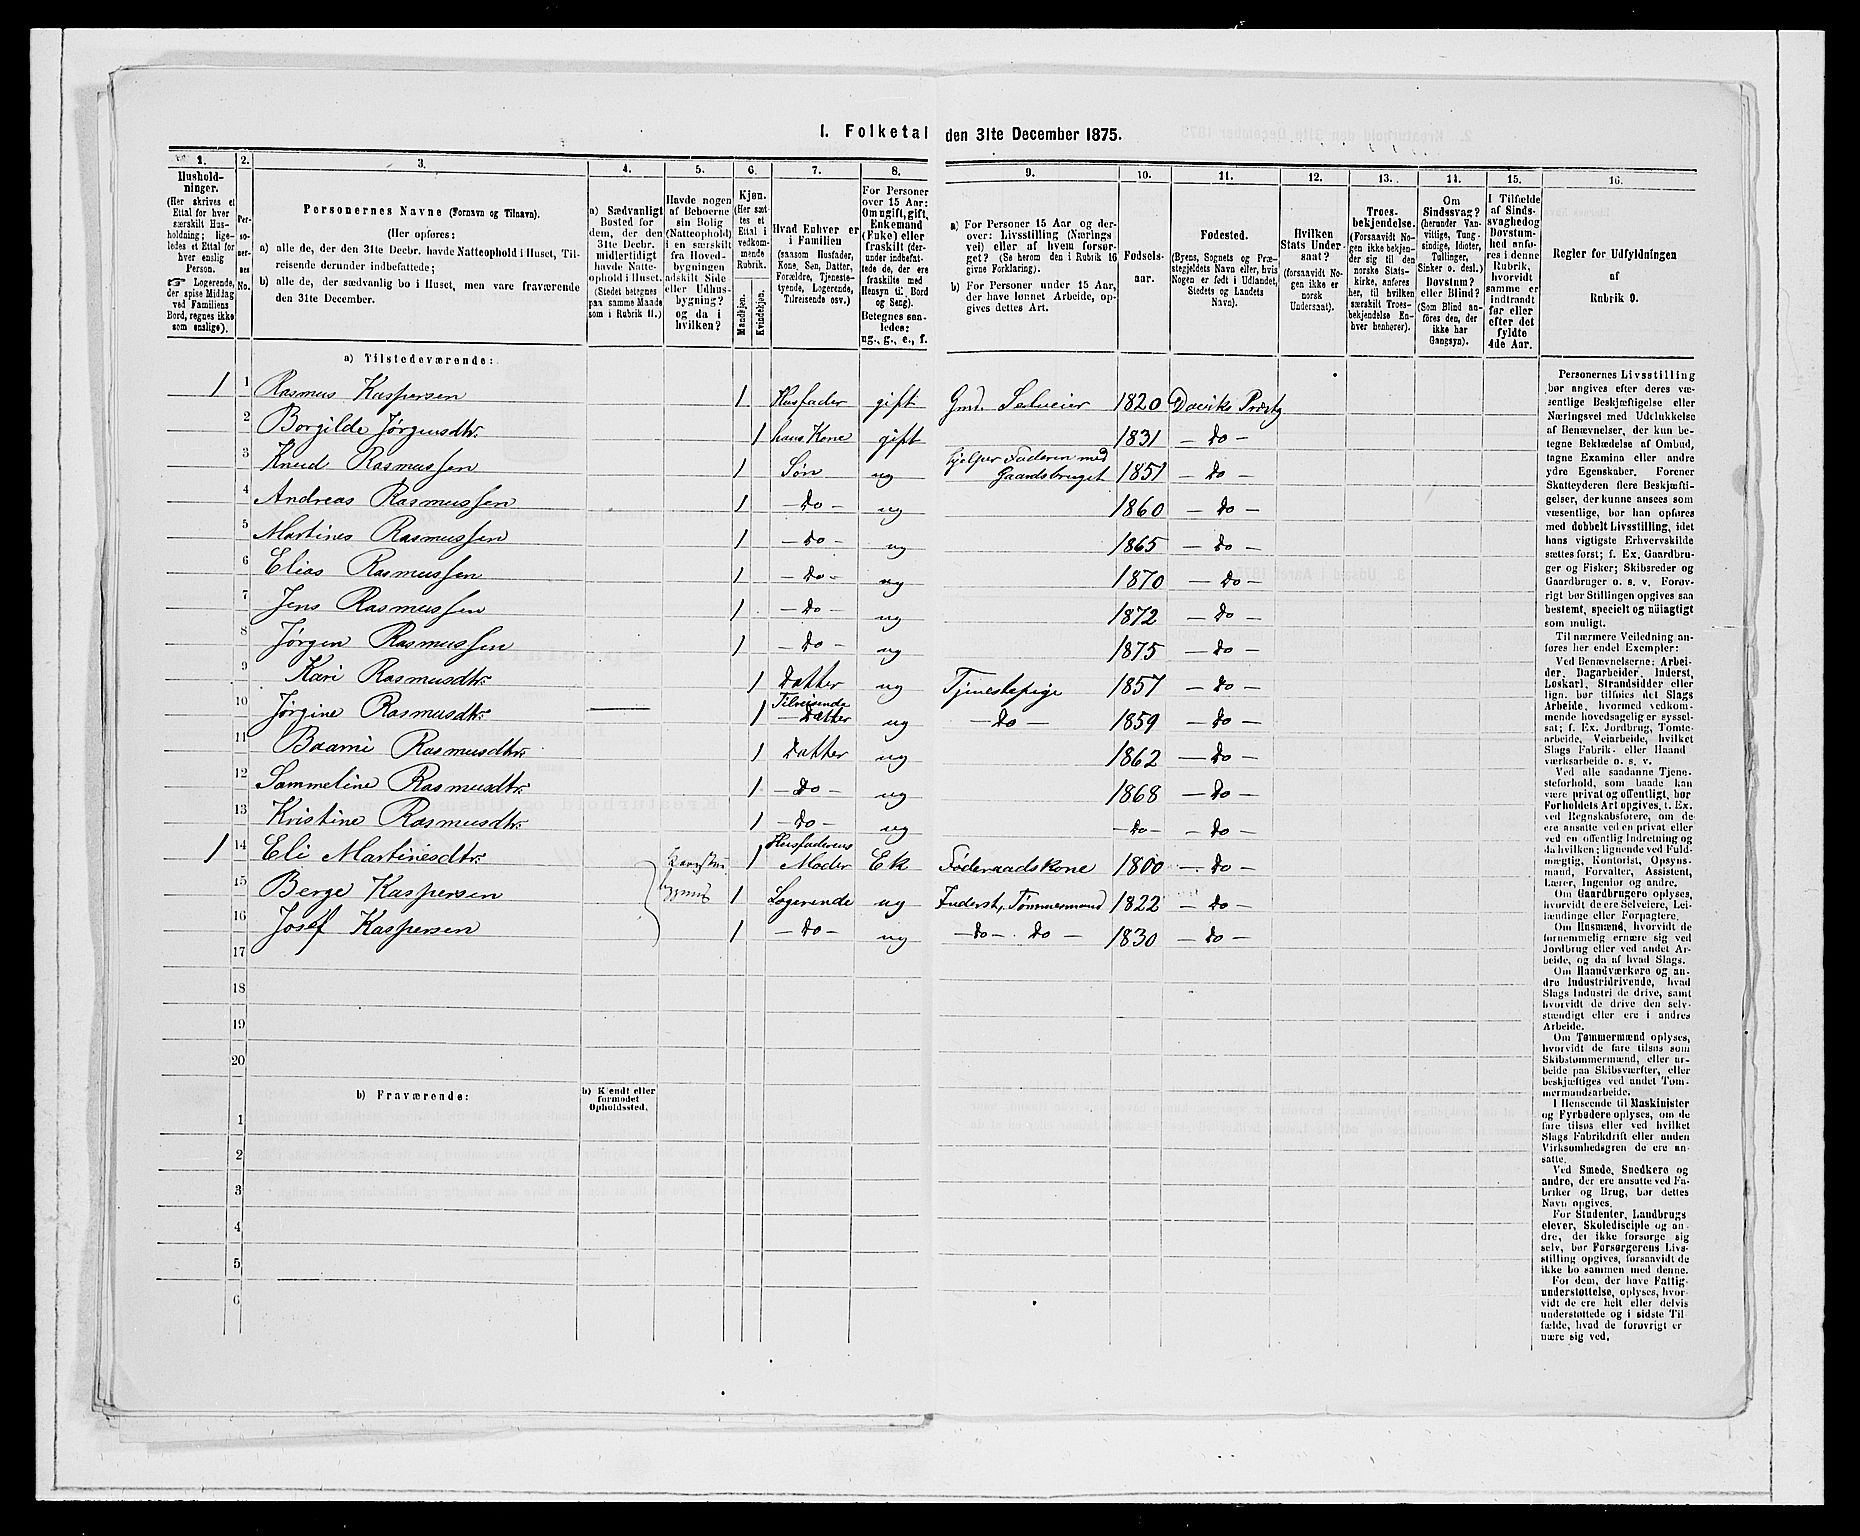 1. Folketal den 31te December 1875.
1. 2. 3. 4. 5. 6. 7. 8. 9. 10. 11. 12. 13. 14. 15. 16.
Husholdninger.
(Her skrives et
Ettal for hver
særskilt Husholdning;
ligeledes et Ettal for
hver enslig
Person.
☞ Logerende,
der spise Middag
ved Familiens
Bord, regnes ikke
som enslige).
Personernes No.
Personernes Navne (Fornavn og Tilnavn).
(Her opføres:
a) alle de, der den 31te Decbr. havde Natteophold i Huset, Tilreisende derunder indbefattede;
b) alle de, der sædvanlig bo i Huset, men vare fraværende
den 31te December.
a) Sædvanligt
Bosted for
dem, der den
31te Decbr.
midlertidigt
havde Natteophold i Huset.
(Stedet betegnes
paa samme Maade
som i Rubrik 11.)
Havde nogen
af Beboerne
sin Bolig
(Natteophold)
i en særskilt
fra Hovedbygningen
adskilt Side
eller Udhusbygning?
og da i
hvilken?
Kjøn.
(Her sættes et
Ettal i
vedkommende
Rubrik.
Mandkjøn.
Kvindekjøn.
Hvad Enhver er
i Familien
(saasom Husfader,
Kone, Søn, Datter,
Forældre, Tjenestetyende, Logerende,
Tilreisende osv.)
For Personer
over 15 Aar:
Om ugift, gift,
Enkemand
(Enke) eller
fraskilt (derunder indbefattede de, der ere
fraskilte med
Hensyn til Bord
og Seng).
Betegnes saaledes:
ug., g., e., f.
a) For Personer 15 Aar og derover: Livsstilling (Næringsvei) eller af hvem forsørget? (Se herom den i Rubrik 16
givne Forklaring).
b) For Personer under 15 Aar,
der have lønnet Arbeide, opgives dettes Art.
Fødselsaar.
Fødested.
(Byens, Sognets og Præstegjeldets Navn eller, hvis
Nogen er født i Udlandet,
Stedets og Landets
Navn).
Hvilken
Stats Undersaat?
(forsaavidt Nogen ikke er
norsk
Undersaat).
Troesbekjendelse.
(Forsaavidt Nogen ikke bekjender sig til den
norske Statskirke, anføres
her, til hvilken
særskilt Troesbekjendelse Enhver henhører).
Om
Sindssvag?
(herunder Vanvittige, Tungsindige, Idioter,
Tullinger,
Sinker o. desl.)
Døvstum?
eller Blind?
(Som Blind anføres den, der
ikke har
Gangsyn).
I Tilfælde
af Sindssvaghed og
Døvstumhed anføres i denne
Rubrik,
hvorvidt
samme er
indtraadt
før eller
efter det
fyldte
4de Aar.
Regler for Udfyldningen
af
Rubrik 9.
a) Tilstedeværende:
1 1 Rasmus Kaspersen 1 Husfader gift Gmd. Selveier 1820 Daviks Præstg
2 Borgilde Jørgensdtr. 1 hans Kone gift 1831 – Do –
3 Knud Rasmussen 1 Søn ug hjelper Faderen med Gaardsbruget 1851 – Do –
4 Andreas Rasmussen 1 – Do – ug 1860 – Do –
5 Martines Rasmussen 1 – Do – ug 1865 – Do –
6 Elias Rasmussen 1 – Do – ug 1870 – Do –
7 Jens Rasmussen 1 – Do – ug 1872 – Do –
8 Jørgen Rasmussen 1 – Do – ug 1875 – Do –
9 Kari Rasmusdtr. 1 Datter ug Tjenestepige 1857 – Do –
10 Jørgine Rasmusdtr. — 1 Tilreisende – Datter ug – Do – 1859 – Do –
11 Baami Rasmusdtr. 1 Datter ug 1862 – Do –
12 Sammeline Rasmusdtr. 1 – Do – ug 1868 – Do –
13 Kristine Rasmusdtr. 1 – Do – ug – Do – – Do –
1 14 Eli Martinesdtr. 1 Husfaderens Moder Ek Føderaadskone 1800 – Do –
15 Berge Kaspersen 1 Logerende ug Inderst, Tømmermand 1822 – Do –
16 Josef Kaspersen 1 – Do – ug – Do – Do – 1830 – Do –
17
18
19
20
b) Fraværende:
b) Kjendt eller
formodet
Opholdssted.
1
2
3
4
5
6
Personernes Livsstilling
bør angives efter deres væsentlige Beskjæftigelse eller
Næringsvei med Udelukkelse
af Benævnelser, der kun betegne Beklædelse af Ombud,
tagne Examina eller andre
ydre Egenskaber. Forener
Skatteyderen flere Beskjæftigelser, der kunne ansees som
væsentlige, bør han opføres
med dobbelt Livsstilling, idet
hans vigtigste Erhvervskilde
sættes først; f. Ex. Gaardbruger og Fisker; Skibsreder og
Gaardbruger o. s. v. Forøvrigt bør Stillingen opgives saa
bestemt, specielt og nøiagtigt
som muligt.
Til nærmere Veiledning anføres her endel Exempler:
Ved Benævnelserne: Arbeider, Dagarbeider, Inderst,
Løskarl, Strandsidder eller
lign. bør tilføies det Slags
Arbeide, hvormed vedkommende hovedsagelig er sysselsat; f. Ex. Jordbrug, Tomtearbeide, Veiarbeide, hvilket
Slags Fabrik- eller Haandværksarbeide o. s. v.
Ved alle saadanne Tjenesteforhold, som baade kan
være privat og offentligt, bør
Forholdets Art opgives, t. Ex.
ved Regnskabsførere, om de
ere ansatte ved en privat eller
ved en offentlig Indretning og
da hvilken; lignende ved Fuldmægtig, Kontorist, Opsynsmand, Forvalter, Assistent,
Lærer, Ingeniør og andre.
Om Gaardbrugere oplyses,
hvorvidt de ere Selveiere, Leilændinge eller Forpagtere.
Om Husmænd, hvorvidt de
fornemmelig ernære sig ved
Jordbrug eller ved andet Arbeide, og da af hvad Slags.
Om Haandværkere og andre Industridrivende, hvad
Slags Industri de drive, samt
hvorvidt de drive den selvstændigt eller ere i andres
Arbeide.
Om Tømmermænd oplyses,
hvorvidt de fare tilsøs som
Skibstømmermænd, eller arbeide paa Skibsværfter, eller
beskjæftiges ved andet Tømmermandsarbeide.
I Henseende til Maskinister
og Fyrbødere oplyses, om de
fare tilsøs eller ved hvilket
Slags Fabrikdrift eller anden
Virksomhedsgren de ere ansatte.
Ved Smede, Snedkere og
andre, der ere ansatte ved Fabriker og Brug, bør dettes
Navn opgives.
For Studenter, Landbrugselever, Skoledisciple og andre, der ikke forsørge sig
selv, bør Forsørgerens Livsstilling opgives, forsaavidt de
ikke bo sammen med denne.
For dem, der have Fattigunderstøttelse, oplyses, hvorvidt de ere helt eller delvis
understøttede og i sidste Tilfælde, hvad de forøvrigt er
nære sig ved.